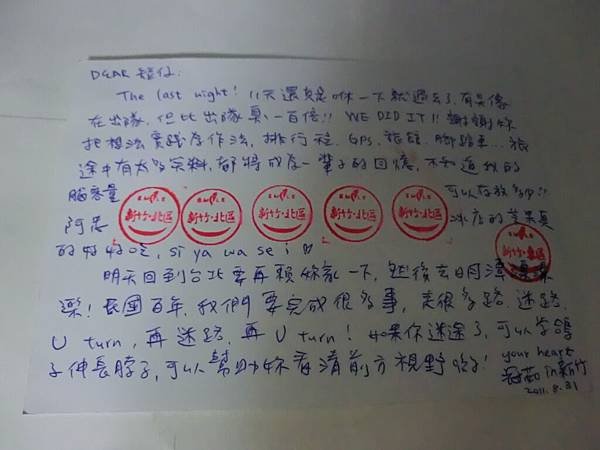 DEAR
The last night! 11天還真是咻一下就過去了,有點像
在出隊,但比出隊真一百倍!! WE DID IT!! 謝謝妳
把想法實踐存作法,排行程、GPS、旅館、腳踏車...旅
途中有太多笑料,都將成為一輩子的回憶,不知道我的
腦容量 可以存放多少!!
新竹・北區 新竹・北區 新竹・北區 新竹・北區 新竹・北區
阿忠 冰店的芒果真
的好好吃, si ya wa se i
新竹・東區
明天回到台北要再煩妳家一下,然後去月津
樂!民國百年,我們要完成很多事,走很多路,迷路,
U turn,再迷路,再U turn! 如果你迷途了,可以學鴿
子伸長脖子,可以幫助妳看清前方視野 your heart
in新竹
2011.8.31